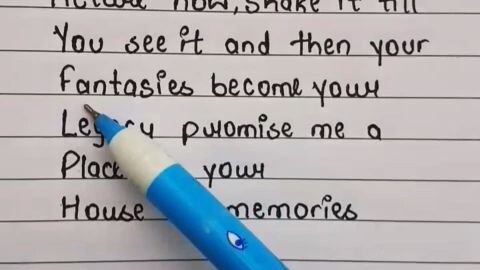 now, shake it till
You see it and then your
fantasies become your
Legacy promise me a
Place your
House memories